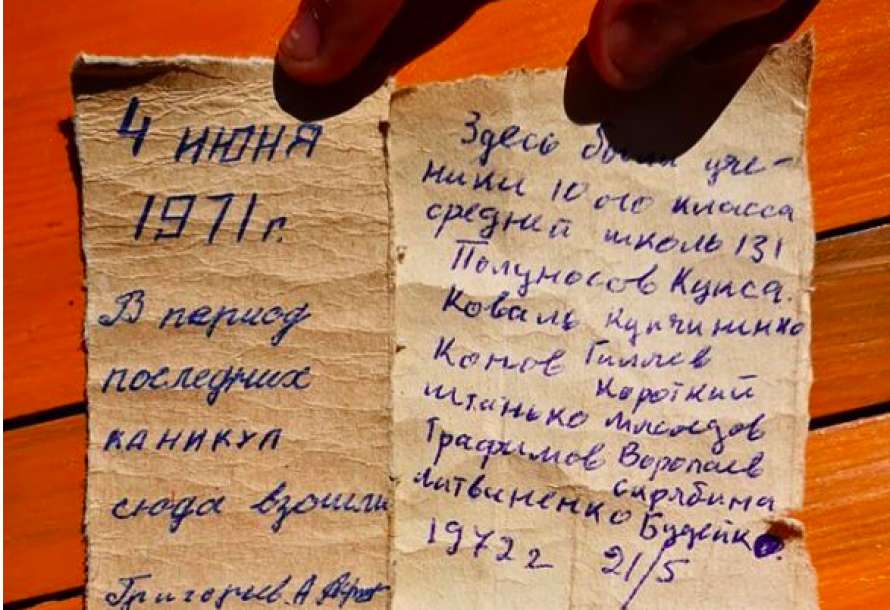 4 июня
1971 г.
В период
последних
каникул
сюда взошли
Григорьев. А
Здесь были уче-
ники 10ого класса
средней школь 131
Полуносов Кукса.
Коваль Купчиненко
Конов Гиллев
Короткий
Штанько Мясоедов
Трафимов Воропаев
Скрябина
Литвиненко Будейко.
1972 г 21/5